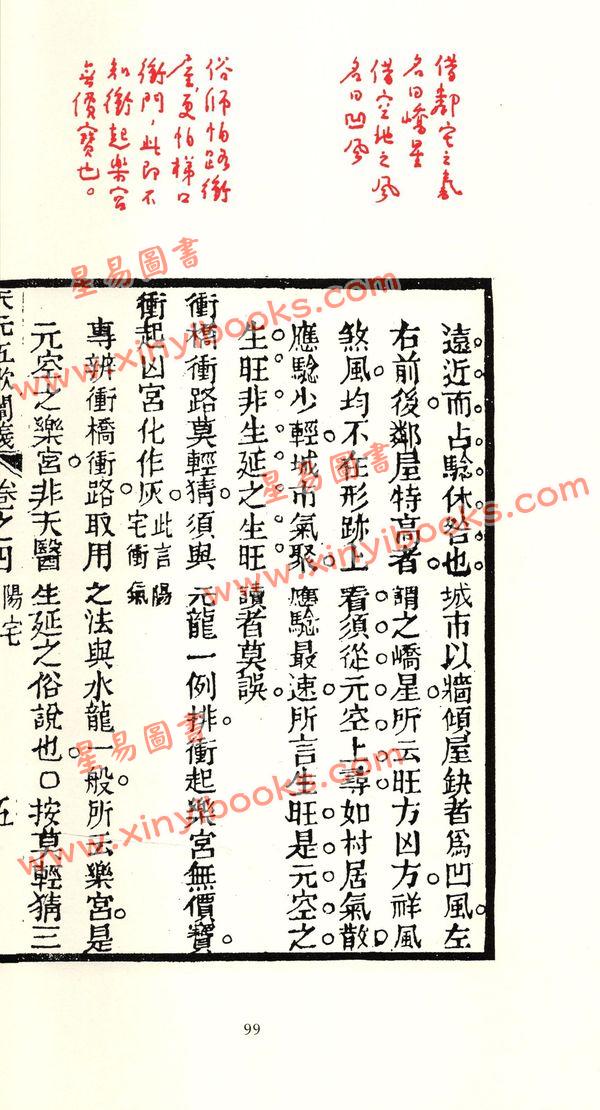 借鄰宅之氣
名曰嶠星
借空地之風
名曰凹風
俗師怕路衝
屋更怕梯口
衝門，此即不
知衝起樂宮
無價寶也。
遠近而占驗休咎也城市以牆傾屋缺者為凹風左
右前後鄰屋特高者謂之嶠星所云旺方凶方祥風
煞風均不在形跡上看須從元空上尋如村居氣散
應驗少輕城市氣聚應驗最速所言生旺是元空之
生旺非生延之生旺讀者莫誤
衝橋衝路莫輕猜須與元龍一例排衝起樂宮無價寶
衝起凶宮化作灰此言陽宅衝氣
專辨衝橋衝路取用之法與水龍一般所云樂宮是
元空之樂宮非天醫生延之俗說也○按莫輕猜三
天元五歌闡義 卷之四 陽宅 五
99
星易圖書
www.xinyibooks.com
星易圖書
www.xinyibooks.com
星易圖書
www.xinyibooks.com
星易圖書
www.xinyibooks.com